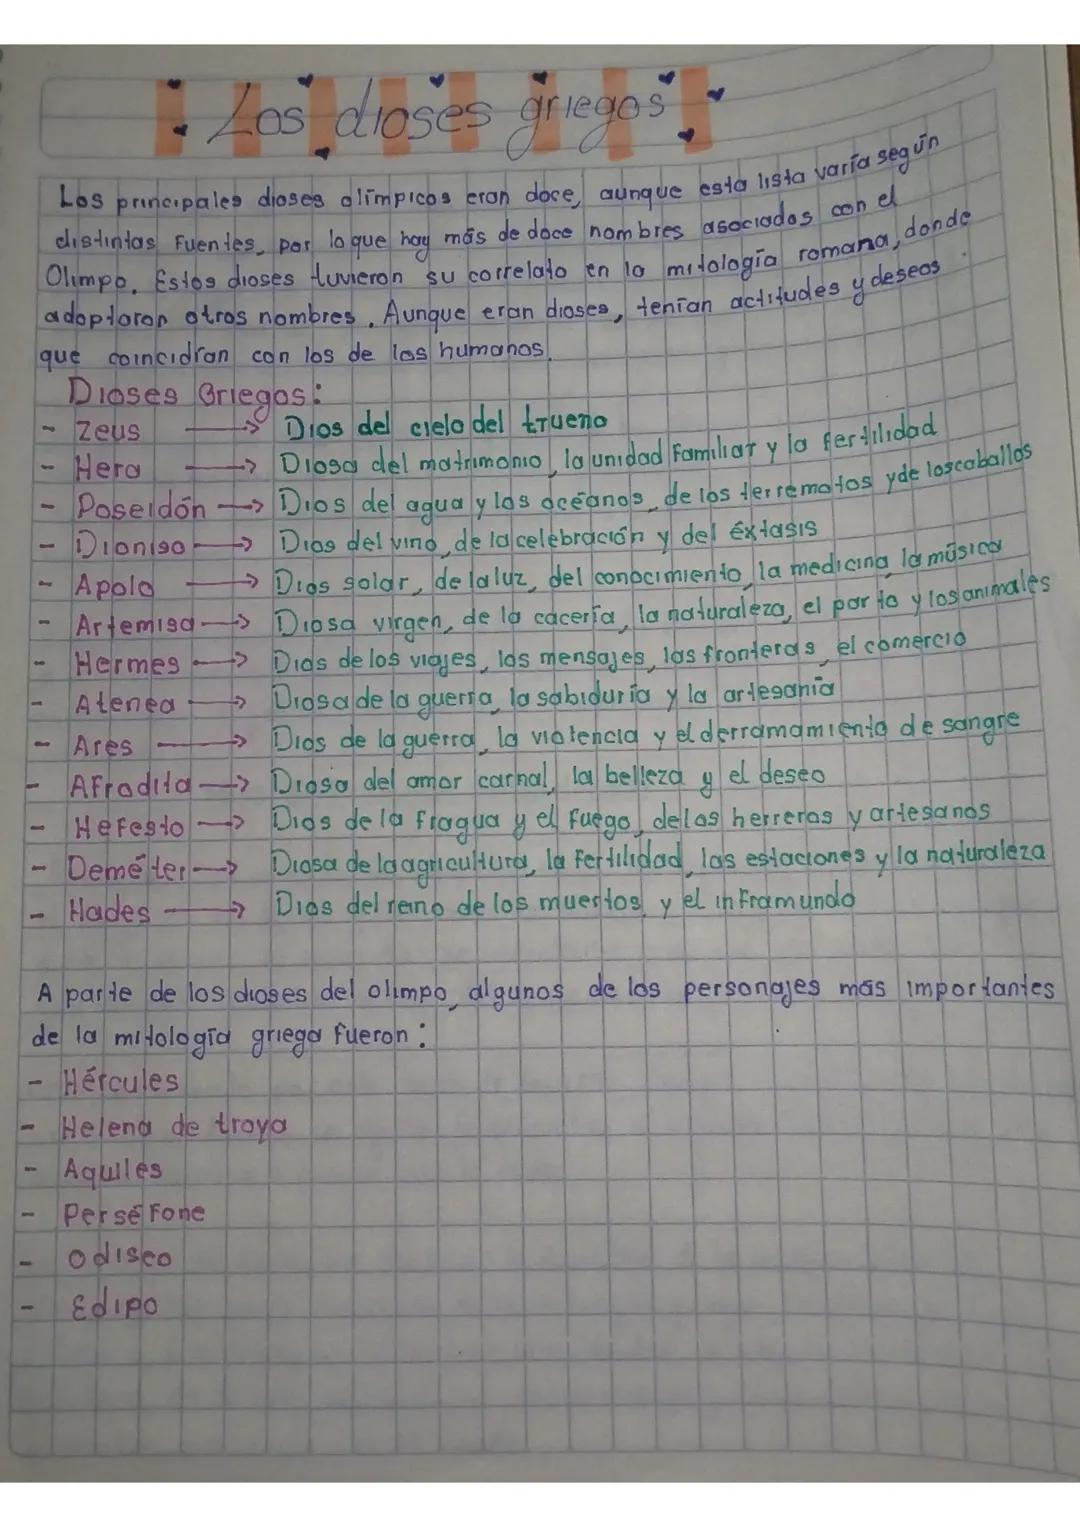 Los dioses griegos
Los principales dioses olímpicos eran doce, aunque esta lista varía según
distintas Fuentes, por lo que hay más de doce nombres asociados con el
Olimpo. Estos dioses tuvieron su correlato en la mitología romana, donde
adoptaron otros nombres. Aunque eran dioses, tenían actitudes y deseos
que coincidían con los de los humanos.
Dioses Griegos:
- Zeus → Dios del cielo del trueno
- Hera → Diosa del matrimonio, la unidad Familiar y la fertilidad
- Poseidón → Dios del agua y los océanos, de los terremotos y de los caballos
- Dioniso → Dios del vino, de la celebración y del éxtasis
- Apolo → Dios solar, de la luz, del conocimiento, la medicina, la música
- Artemisa → Diosa virgen, de la cacería, la naturaleza, el parto y los animales
- Hermes → Dios de los viajes, los mensajes, las fronteras, el comercio
- Atenea → Diosa de la guerra, la sabiduría y la artesanía
- Ares → Dios de la guerra, la violencia y el derramamiento de sangre
- AFrodita → Diosa del amor carnal, la belleza y el deseo
- HeFesto → Dios de la Fragua y el Fuego, de los herreros y artesanos
- Deméter → Diosa de la agricultura, la Fertilidad, las estaciones y la naturaleza
- Hades → Dios del reino de los muertos y el inFramundo
A parte de los dioses del olimpo, algunos de los personajes más importantes
de la mitología griega Fueron:
- Hércules
- Helena de troya
- Aquiles
- PerséFone
- odiseo
- Edipo